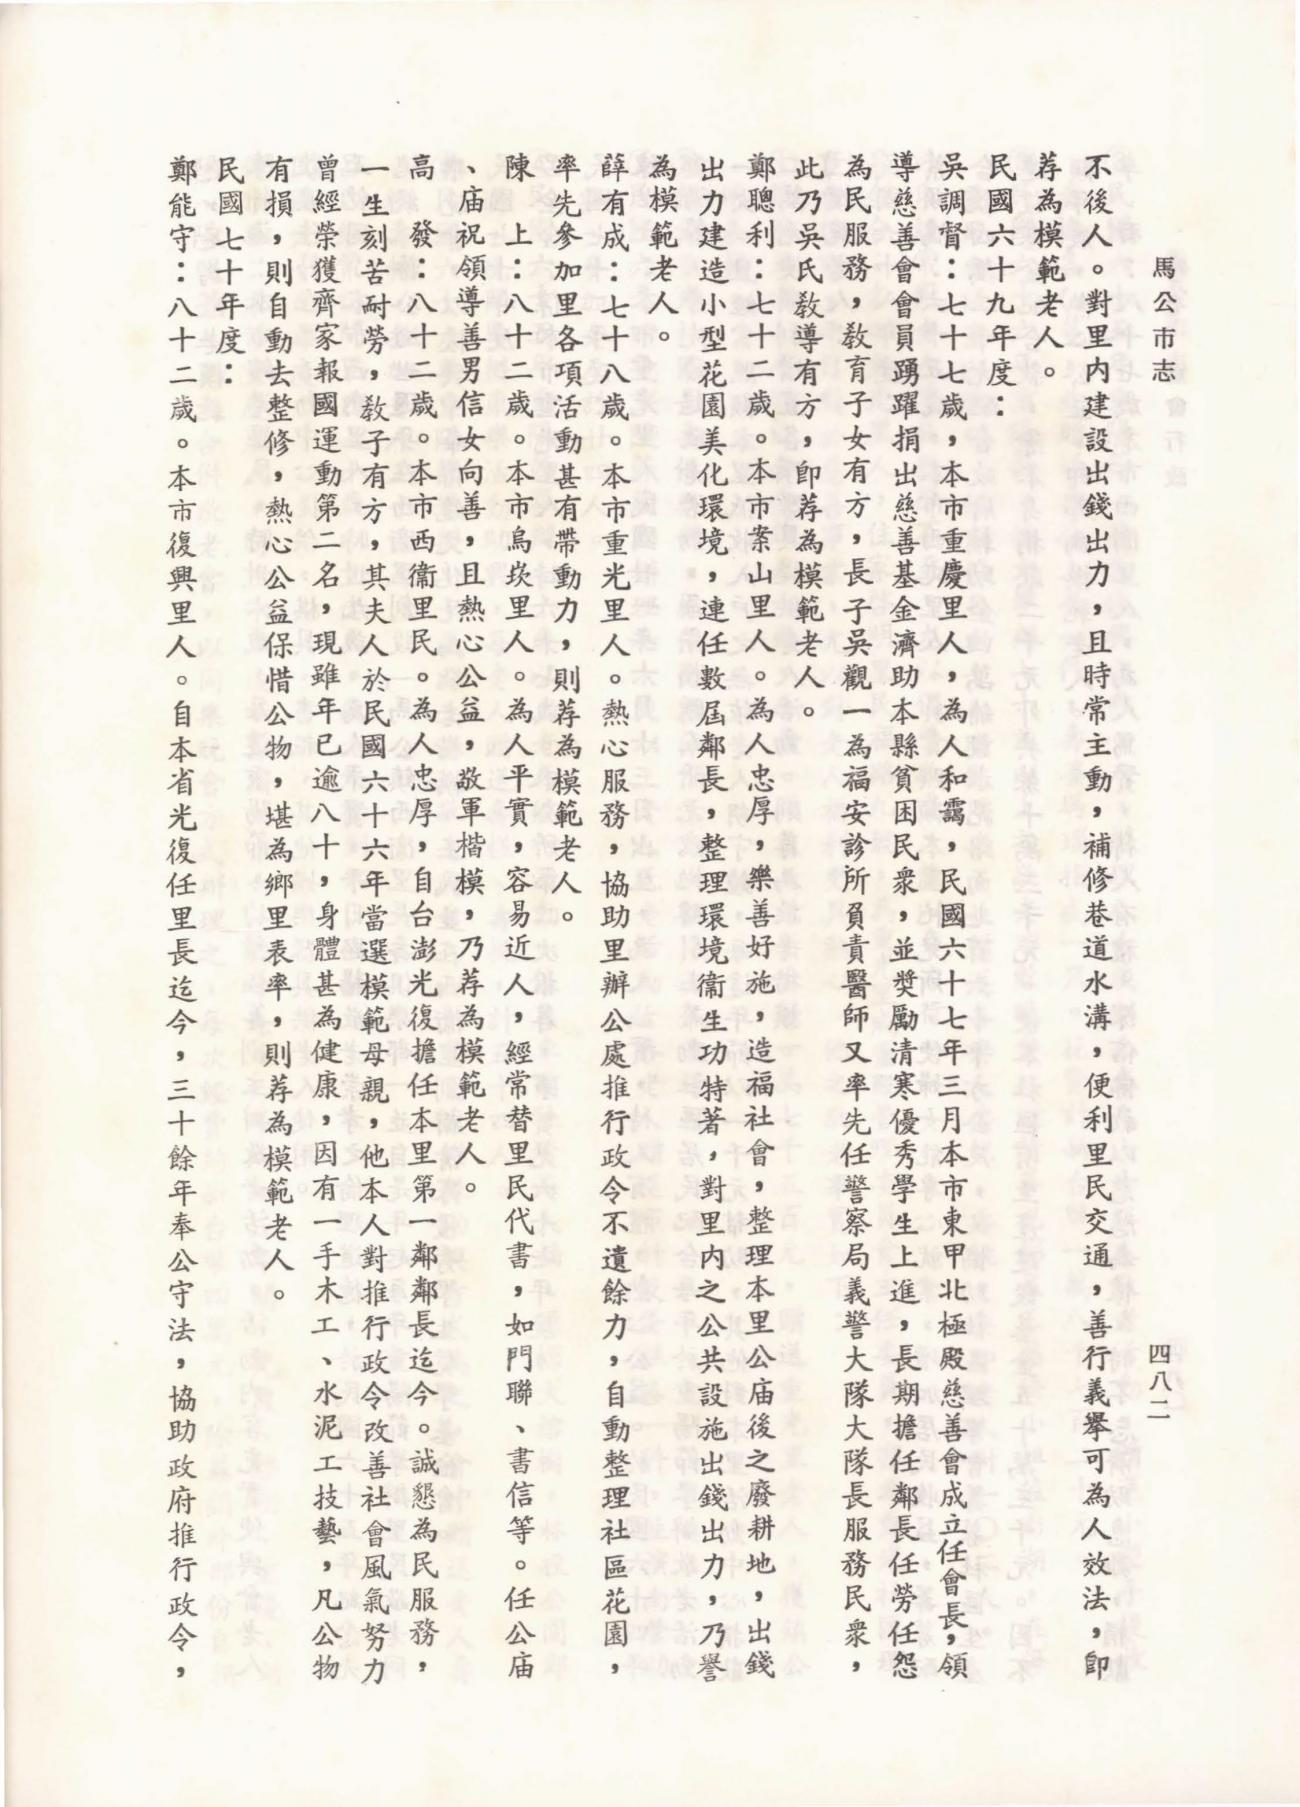 馬公市志
四八二
不後人。對里內建設出錢出力，且時常主動，補修巷道水溝，便利里民交通，善行義擧可為人效法，卽
荐為模範老人。
民國六十九年度：
吳調督：七十七歲，本市重慶里人，為人和靄，民國六十七年三月本市東甲北極殿慈善會成立任會長，領
導慈善會會員踴躍捐出慈善基金濟助本縣貧困民衆，並奬勵清寒優秀學生上進，長期擔任鄰長任勞任怨
為民服務，敎育子女有方，長子吳觀一為福安診所負責醫師又率先任警察局義警大隊大隊長服務民衆，
此乃吳氏敎導有方，卽荐為模範老人。
鄭聰利：七十二歲。本市案山里人。為人忠厚，樂善好施，造福社會，整理本里公庙後之廢耕地，出錢
出力建造小型花園美化環境，連任數屆鄰長，整理環境衞生功特著，對里內之公共設施出錢出力，乃譽
為模範老人。
薛有成：七十八歲。本市重光里人。熱心服務，協助里辦公處推行政令不遺餘力，自動整理社區花園，
率先參加里各項活動甚有帶動力，則荐為模範老人。
陳　上：八十二歲。本市烏崁里人。為人平實，容易近人，經常替里民代書，如門聯、書信等。任公庙
、庙祝領導善男信女向善，且熱心公益，敬軍楷模，乃荐為模範老人。
高　發：八十二歲。本市西衞里民。為人忠厚，自台澎光復擔任本里第一鄰鄰長迄今。誠懇為民服務，
一生刻苦耐勞，敎子有方，其夫人於民國六十六年當選模範母親，他本人對推行政令改善社會風氣努力
曾經榮獲齊家報國運動第二名，現雖年已逾八十，身體甚為健康，因有一手木工、水泥工技藝，凡公物
有損，則自動去整修，熱心公益保惜公物，堪為鄉里表率，則荐為模範老人。
民國七十年度：
鄭能守：八十二歲。本市復興里人。自本省光復任里長迄今，三十餘年奉公守法，協助政府推行政令，